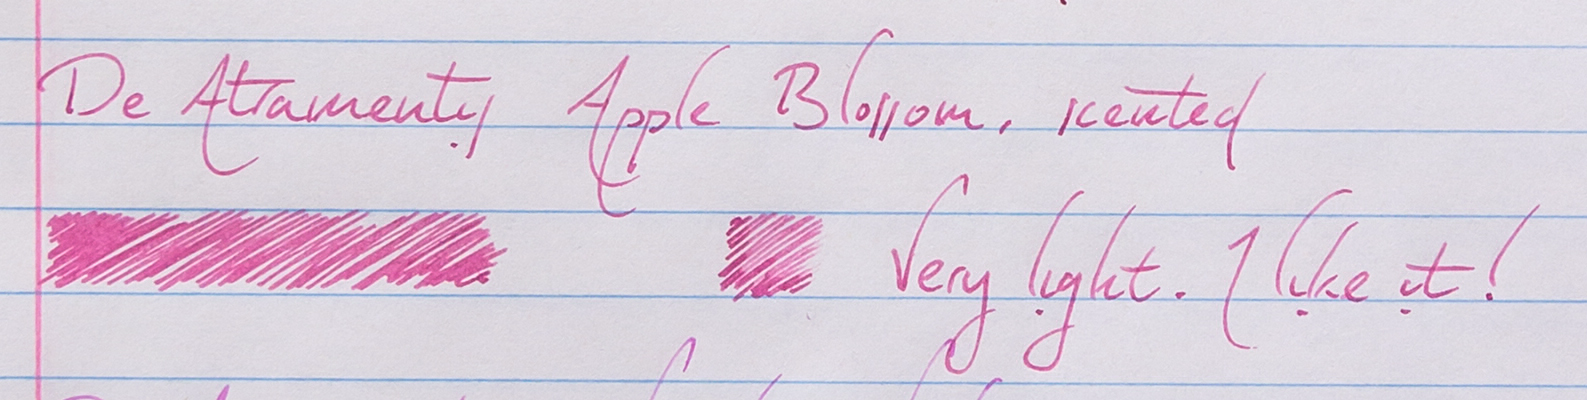 De Atramentis Apple Blossom, scented
Very light. I like it!